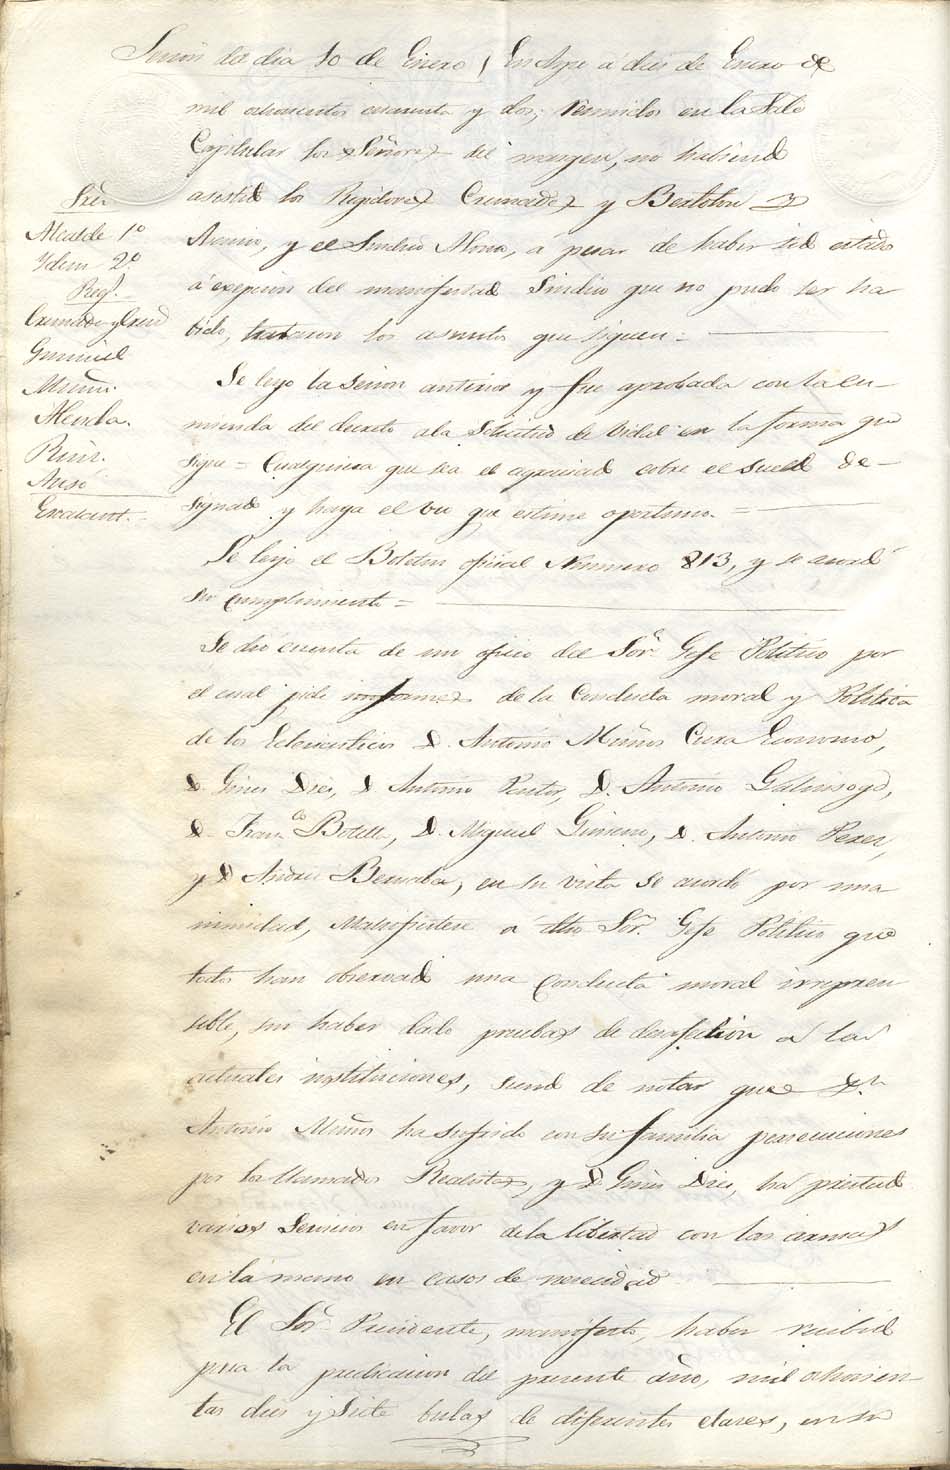 Sesion del dia 10 de Enero / En Aspe á dies de Enero de
mil ochocientos cuarenta y dos; reunidos en la Sala
Capitular los Señores del margen, no habiend
asistid los Regidores Cremades y Bertoleu
y el Sindico á pesar de haber sid citado
á excepcion del manifestad Sindico que no pudo ser ha
bido, trataron los asuntos que siguen =
Sres
Alcalde 1º
Ydem 2º
Reg.
Cremades y
Gumiel
Muñoz.
Almela.
Ruiz.
Aviso
Escalant.
Se leyo la sesion anterior y fue aprobada con la en-
mienda del decreto ala solicitud de Vidal en la forma que
sigue = Cualquiera que sea el agraciad cobre el sueld de-
signado y haga el uso que estime oportuno. =
Se leyo el Boletin oficial Numero 813, y se acord
su cumplimento =
Se dió cuenta de un oficio del Sor. Gefe Politico por
el cual pide informes de la Conducta moral y Politica
de los Eclesiasticos D. Antonio Muños Cura Economo,
D. Gines Dies, D Antonio Pastor, D. Antonio Galinsoga,
D. Franco Botella, D. Miguel Gimeno, D. Antonio Perez,
y D Andres Berenda, en su vista se acordó por una
nimidad, Manifiestese a dho Sor. Gefe Politico que
todos han observado una conducta moral irrepren
sible, sin haber dado pruebas de desafeccion á las
actuales instituciones, siend de notar que Dn.
Antonio Muños ha sufrido con su familia persecuciones
por los llamados Realistas, y D Gines Dies, ha prestad
varios servicios en favor de la libertad con las armas
en la mano en casos de necesidad.
El Sor. Presidente, manifesto, haber recibid
para la predicacion del presente año, mil ochocien-
tas dies y siete bulas de diferentes clases, en su